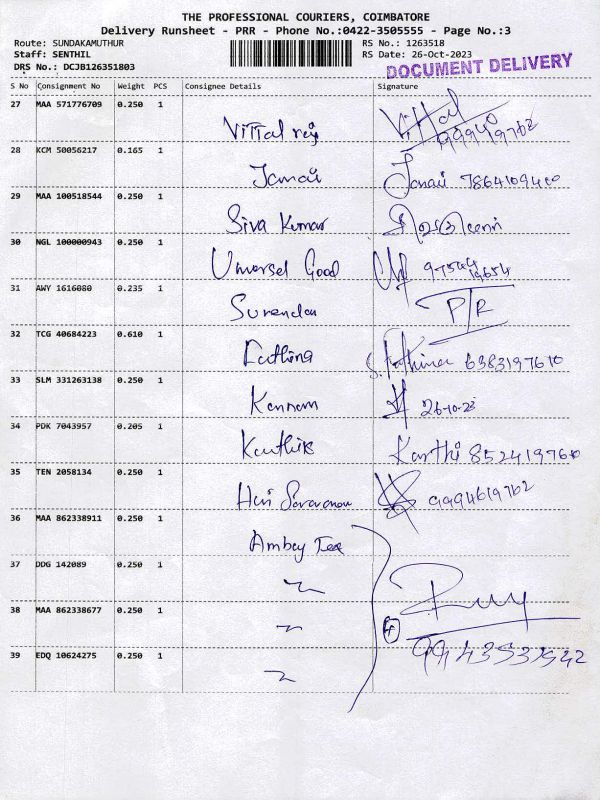 THE PROFESSIONAL COURIERS, COIMBATORE
Delivery Runsheet - PRR - Phone No.:0422-3505555 - Page No.:3
Route: SUNDAKAMUTHUR
RS No.: 1263518
Staff: SENTHIL
RS Date: 26-Oct-2023
DRS No.: DCJB126351803
DOCUMENT DELIVERY
S No Consignment No Weight PCS Consignee Details Signature
27 MAA 571776709 0.250 1
Vittal
28 KCM 50056217 0.165 1
7864109400
29 MAA 100518544 0.250 1
Siva Kumar
30 NGL 100000943 0.250 1
Good
31 AWY 1616080 0.235 1
P/R
32 TCG 40684223 0.610 1
Fathima S. Fathima 6383197610
33 SLM 331263138 0.250 1
Kannam 26-10-23
34 PDK 7043957 0.205 1
Karthik Karthi 852419760
35 TEN 2058134 0.250 1
Hari Saravanan 9994619762
36 MAA 862338911 0.250 1
Ambey Tex
37 DDG 142089 0.250 1
38 MAA 862338677 0.250 1
4
39 EDQ 10624275 0.250 1